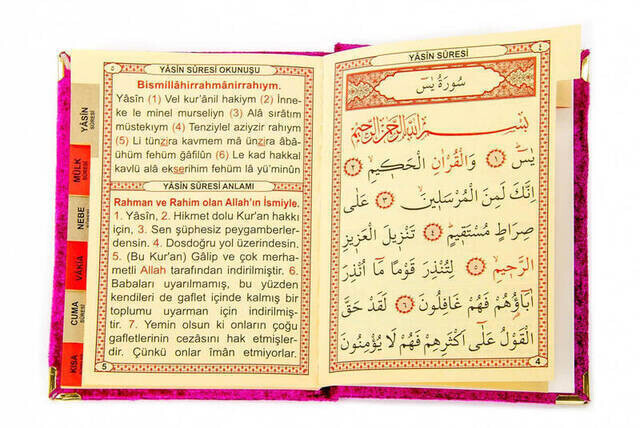 YÂSİN SÛRESİ
٤
سُورَةُ يٰسٓ
بِسْمِ اللّٰهِ الرَّحْمٰنِ الرَّحِيمِ
يٰسٓ ﴿١﴾ وَالْقُرْاٰنِ الْحَكِيمِ ﴿٢﴾
اِنَّكَ لَمِنَ الْمُرْسَلِينَ ﴿٣﴾ عَلٰى
صِرَاطٍ مُسْتَقِيمٍ ﴿٤﴾ تَنْزِيلَ الْعَزِيزِ
الرَّحِيمِ ﴿٥﴾ لِتُنْذِرَ قَوْمًا مَٓا اُنْذِرَ
اٰبَٓاؤُهُمْ فَهُمْ غَافِلُونَ ﴿٦﴾ لَقَدْ حَقَّ
الْقَوْلُ عَلٰٓى اَكْثَرِهِمْ فَهُمْ لَا يُؤْمِنُونَ
4
٥
YÂSİN SÛRESİ OKUNUŞU
Bismillâhirrahmânirrahıym.
Yâsîn (1) Vel kur'ânil hakiym (2) İnne-
ke le minel murseliyn (3) Alâ sırâtım
müstekıym (4) Tenziylel aziyzir rahıym
(5) Li tünzira kavmem mâ ünzira âbâ-
ühüm fehüm ğâfilûn (6) Le kad hakkal
kavlü alâ ekserihim fehüm lâ yü'minûn
YÂSİN SÛRESİ ANLAMI
Rahman ve Rahim olan Allah'ın İsmiyle.
1. Yâsîn, 2. Hikmet dolu Kur'an hakkı
için, 3. Sen şüphesiz peygamberler-
densin. 4. Dosdoğru yol üzerindesin.
5. (Bu Kur'an) Gâlip ve çok merha-
metli Allah tarafından indirilmiştir. 6.
Babaları uyarılmamış, bu yüzden
kendileri de gaflet içinde kalmış bir
toplumu uyarman için indirilmiş-
tir. 7. Yemin olsun ki onların çoğu
gafletlerinin cezasını hak etmişler-
dir. Çünkü onlar îman etmiyorlar.
5
YÂSİN
SÛRESİ
MÜLK
SÛRESİ
NEBE
SÛRESİ
VÂKIA
CUMA
SÛRESİ
KISA